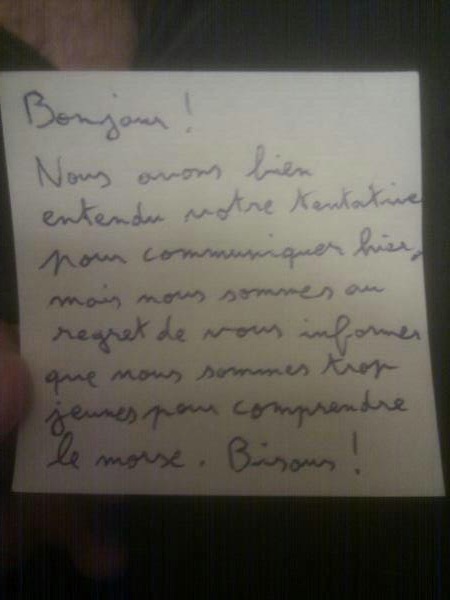 Bonjour !
Nous avons bien
entendu votre tentative
pour communiquer hier,
mais nous sommes au
regret de vous informer
que nous sommes trop
jeunes pour comprendre
le morse. Bisous !